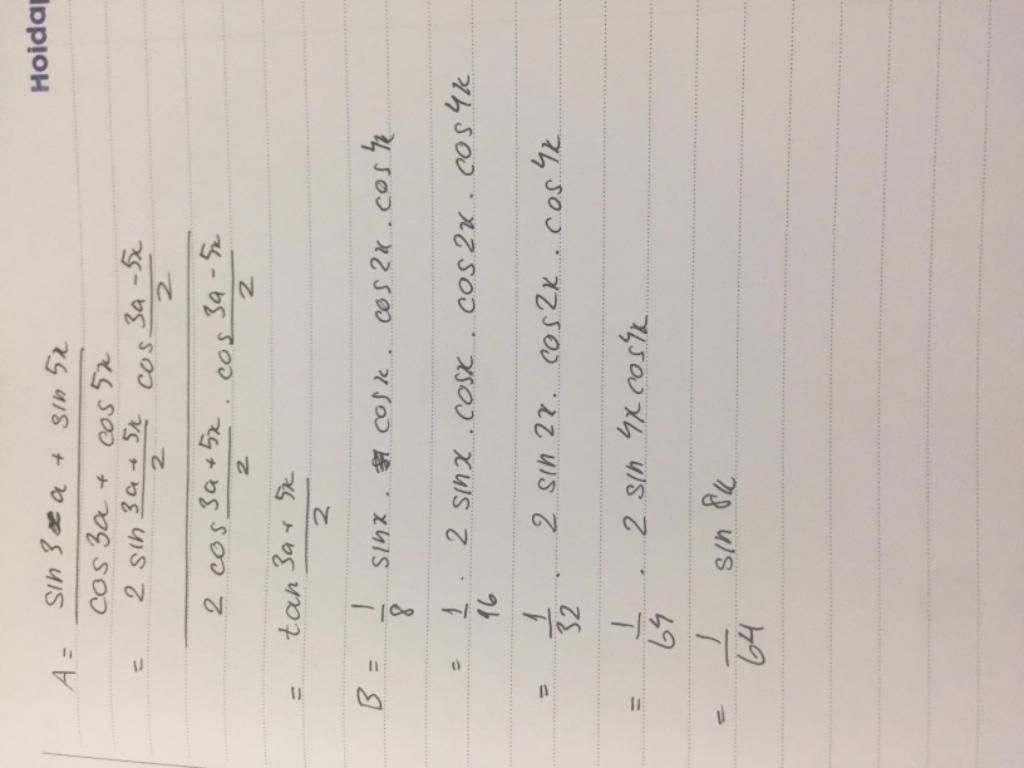 Hoidap
A = (sin 3a + sin 5x) / (cos 3a + cos 5x)
= (2 sin (3a + 5x)/2 cos (3a - 5x)/2) / (2 cos (3a + 5x)/2 . cos (3a - 5x)/2)
= tan (3a + 5x)/2
B = 1/8 sinx . cosx . cos2x . cos4x
= 1/16 . 2 sinx . cosx . cos2x . cos4x
= 1/32 . 2 sin 2x . cos2x . cos4x
= 1/64 . 2 sin 4x cos4x
= 1/64 sin 8x